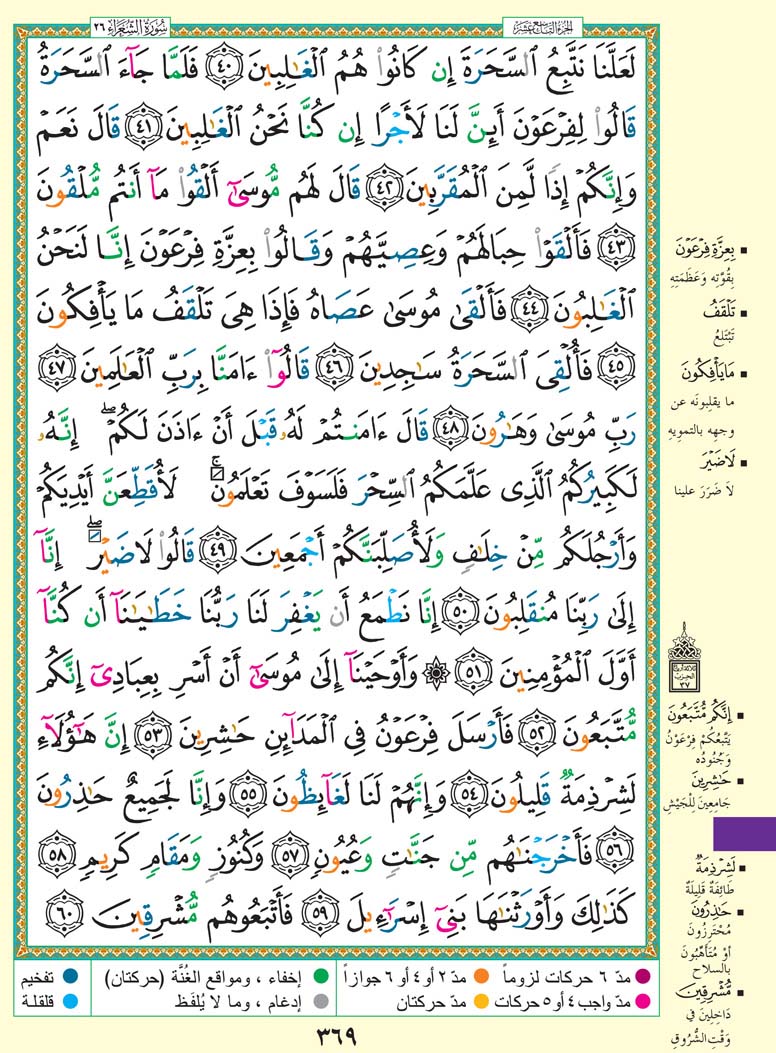 سُورَةُ الشُّعَرَاءِ ٢٦
الجزء التاسع عشر
لَعَلَّنَا نَتَّبِعُ ٱلسَّحَرَةَ إِن كَانُوا۟ هُمُ ٱلْغَـٰلِبِينَ ٤٠ فَلَمَّا جَآءَ ٱلسَّحَرَةُ
قَالُوا۟ لِفِرْعَوْنَ أَئِنَّ لَنَا لَأَجْرًا إِن كُنَّا نَحْنُ ٱلْغَـٰلِبِينَ ٤١ قَالَ نَعَمْ
وَإِنَّكُمْ إِذًا لَّمِنَ ٱلْمُقَرَّبِينَ ٤٢ قَالَ لَهُم مُّوسَىٰٓ أَلْقُوا۟ مَآ أَنتُم مُّلْقُونَ
٤٣ فَأَلْقَوْا۟ حِبَالَهُمْ وَعِصِيَّهُمْ وَقَالُوا۟ بِعِزَّةِ فِرْعَوْنَ إِنَّا لَنَحْنُ
ٱلْغَـٰلِبُونَ ٤٤ فَأَلْقَىٰ مُوسَىٰ عَصَاهُ فَإِذَا هِىَ تَلْقَفُ مَا يَأْفِكُونَ
٤٥ فَأُلْقِىَ ٱلسَّحَرَةُ سَـٰجِدِينَ ٤٦ قَالُوٓا۟ ءَامَنَّا بِرَبِّ ٱلْعَـٰلَمِينَ ٤٧
رَبِّ مُوسَىٰ وَهَـٰرُونَ ٤٨ قَالَ ءَامَنتُمْ لَهُۥ قَبْلَ أَنْ ءَاذَنَ لَكُمْ ۖ إِنَّهُۥ
لَكَبِيرُكُمُ ٱلَّذِى عَلَّمَكُمُ ٱلسِّحْرَ فَلَسَوْفَ تَعْلَمُونَ ۚ لَأُقَطِّعَنَّ أَيْدِيَكُمْ
وَأَرْجُلَكُم مِّنْ خِلَـٰفٍ وَلَأُصَلِّبَنَّكُمْ أَجْمَعِينَ ٤٩ قَالُوا۟ لَا ضَيْرَ ۖ إِنَّآ
إِلَىٰ رَبِّنَا مُنقَلِبُونَ ٥٠ إِنَّا نَطْمَعُ أَن يَغْفِرَ لَنَا رَبُّنَا خَطَـٰيَـٰنَآ أَن كُنَّآ
أَوَّلَ ٱلْمُؤْمِنِينَ ٥١ ۞ وَأَوْحَيْنَآ إِلَىٰ مُوسَىٰٓ أَنْ أَسْرِ بِعِبَادِىٓ إِنَّكُم
مُّتَّبَعُونَ ٥٢ فَأَرْسَلَ فِرْعَوْنُ فِى ٱلْمَدَآئِنِ حَـٰشِرِينَ ٥٣ إِنَّ هَـٰٓؤُلَآءِ
لَشِرْذِمَةٌ قَلِيلُونَ ٥٤ وَإِنَّهُمْ لَنَا لَغَآئِظُونَ ٥٥ وَإِنَّا لَجَمِيعٌ حَـٰذِرُونَ
٥٦ فَأَخْرَجْنَـٰهُم مِّن جَنَّـٰتٍ وَعُيُونٍ ٥٧ وَكُنُوزٍ وَمَقَامٍ كَرِيمٍ ٥٨
كَذَٰلِكَ وَأَوْرَثْنَـٰهَا بَنِىٓ إِسْرَٰٓءِيلَ ٥٩ فَأَتْبَعُوهُم مُّشْرِقِينَ ٦٠
▪ بِعِزَّةِ فِرْعَوْنَ
بِقُوَّتِهِ وَعَظَمَتِهِ
▪ تَلْقَفُ
تَبْتَلِعُ
▪ مَا يَأْفِكُونَ
ما يقلِبونَه عن
وجهِه بالتمويهِ
▪ لَا ضَيْرَ
لاَ ضَرَرَ علينا
ثلاثة أرباع
الحزب
٣٧
▪ إِنَّكُم مُّتَّبَعُونَ
يَتَّبِعُكُمْ فِرْعَوْنُ
وَجُنُودُه
▪ حَـٰشِرِينَ
جَامِعِينَ لِلْجَيْشِ
▪ لَشِرْذِمَةٌ
طَائِفَةٌ قَلِيلَةٌ
▪ حَـٰذِرُونَ
مُحْتَرِزُونَ
أوْ مُتَأَهِّبُونَ
بالسلاح
▪ مُّشْرِقِينَ
دَاخِلِينَ فِي
وَقْتِ الشُّرُوقِ
مدّ ٦ حركات لزوماً ● مدّ ٢ أو ٤ أو ٦ جوازاً ● إخفاء ، ومواقع الغُنَّة (حركتان) ● تفخيم
مدّ واجب ٤ أو ٥ حركات ● مدّ حركتان ● إدغام ، وما لا يُلفَظ ● قلقلة
٣٦٩